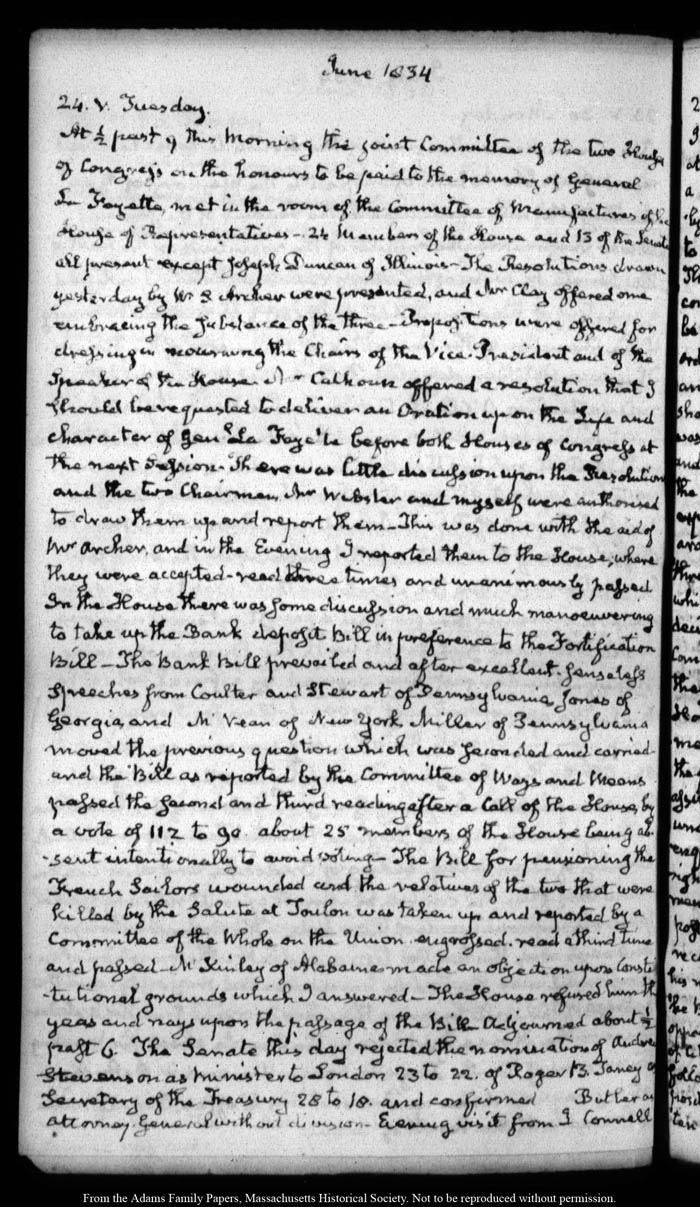 June 1834
24. V. Tuesday.
At ½ past 9 this Morning the joint Committee of the two Houses
of Congress on the honours to be paid to the memory of General
La Fayette, met in the room of the Committee of Manufactures of the
House of Representatives - 24 Members of the House and 13 of the Senate
all present except Joseph Duncan of Illinois - The Resolutions drawn
yesterday by W. S. Archer were presented, and Mr Clay offered one
embracing the substance of the three - Propositions were offered for
dressing in mourning the Chairs of the Vice-President and of the
Speaker of the House. Mr Calhoun offered a resolution that I
should be requested to deliver an Oration upon the Life and
character of Genl La Faye'te before both Houses of Congress at
the next Session. There was little discussion upon the Resolution
and the two Chairmen, Mr Webster and myself were authorised
to draw them up and report them - This was done with the aid of
Mr Archer, and in the Evening I reported them to the House, where
they were accepted - read three times and unanimously passed
In the House there was some discussion and much manoeuvering
to take up the Bank deposit Bill in preference to the Fortification
Bill - The Bank Bill prevailed and after excellent senseless
speeches from Coulter and Stewart of Pennsylvania, Jones of
Georgia, and M'Vean of New York, Miller of Pennsylvania
moved the previous question which was seconded and carried
and the Bill as reported by the Committee of Ways and Means
passed the second and third reading after a Call of the House, by
a vote of 112 to 90. about 25 members of the House being ab-
-sent intentionally to avoid voting - The Bill for pensioning the
French Sailors wounded and the relatives of the two that were
killed by the Salute at Toulon was taken up and reported by a
Committee of the Whole on the Union. engrossed. read a third time
and passed - M'Kinley of Alabama made an objection upon Consti
-tutional grounds which I answered - The House refused him the
yeas and nays upon the passage of the Bill. Adjourned about ½
past 6. The Senate this day rejected the nomination of Andrew
Stevenson as Minister to London 23 to 22. of Roger B. Taney as
Secretary of the Treasury 28 to 18. and confirmed Butler as
Attorney General without division - Evening visit from J Connell
From the Adams Family Papers, Massachusetts Historical Society. Not to be reproduced without permission.